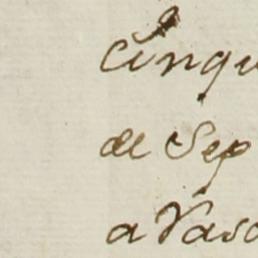 cinqu
de Sep
a Vasc